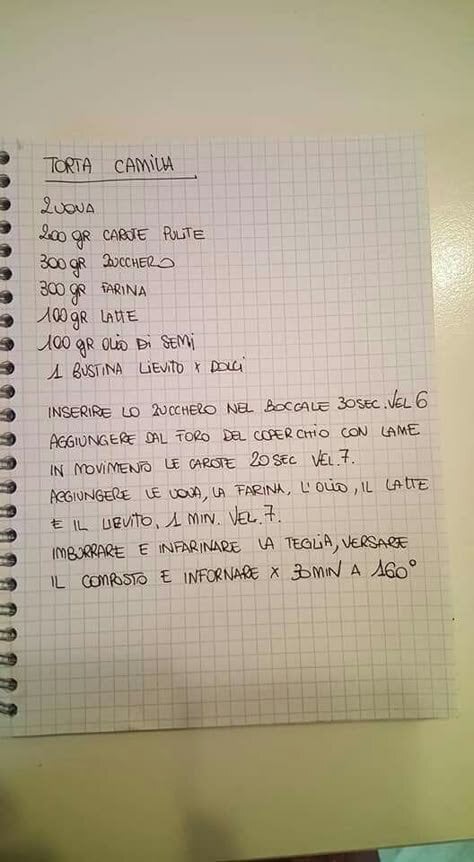 TORTA CAMILLA
2 UOVA
200 GR CAROTE PULITE
300 GR ZUCCHERO
300 GR FARINA
100 GR LATTE
100 GR OLIO DI SEMI
1 BUSTINA LIEVITO X DOLCI
INSERIRE LO ZUCCHERO NEL BOCCALE 30SEC. VEL 6
AGGIUNGERE DAL FORO DEL COPERCHIO CON LAME
IN MOVIMENTO LE CAROTE 20SEC VEL.7.
AGGIUNGERE LE UOVA, LA FARINA, L'OLIO, IL LATTE
E IL LIEVITO, 1 MIN. VEL.7.
IMBURRARE E INFARINARE LA TEGLIA, VERSARE
IL COMPOSTO E INFORNARE X 30MIN A 160°